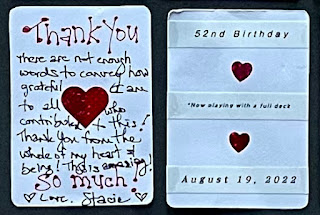 Thank You
There are not enough
words to convey how
grateful I am
to all who
contributed to this!
Thank you from the
whole of my heart &
being! This is amazing!
So much!
♡ Love, Stacie ♡
52nd Birthday
*Now playing with a full deck
August 19, 2022